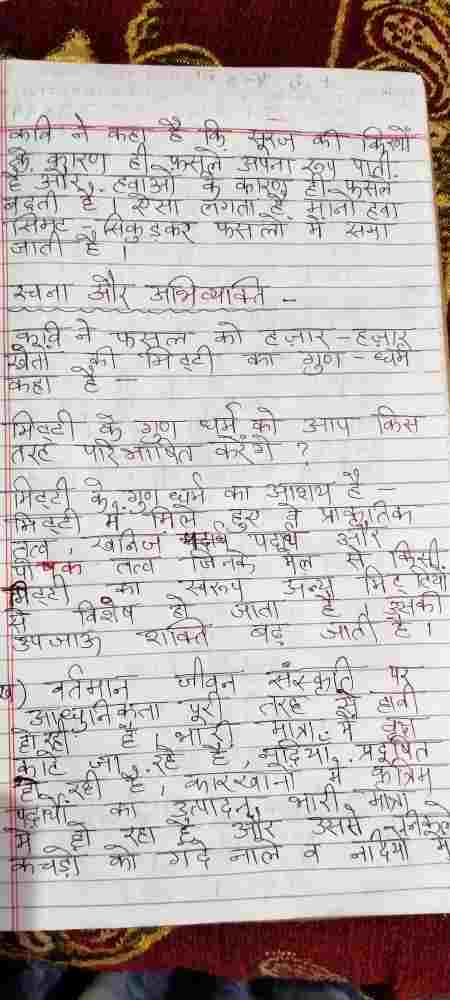 कवि ने कहा है कि सूरज की किरणों
के कारण ही फसले अपना रूप पाती
है और हवाओं के कारण ही फसल
बढ़ती है। ऐसा लगता है मानो हवा
सिमट सिकुड़कर फसलों में समा
जाती है।
रचना और अभिव्यक्ति -
कवि ने फसल को हज़ार - हज़ार
खेतों की मिट्टी का गुण - धर्म
कहा है -
मिट्टी के गुण धर्म को आप किस
तरह परिभाषित करेंगे ?
मिट्टी के गुण धर्म का आशय है -
मिट्टी में मिले हुए वे प्राकृतिक
तत्व, खनिज पदार्थ और
पोषक तत्व जिनके मेल से किसी
मिट्टी का स्वरूप अन्य मिट्टियों
से विशेष हो जाता है, उसकी
उपजाऊ शक्ति बढ़ जाती है।
ख) वर्तमान जीवन संस्कृति पर
आधुनिकता पूरी तरह से हावी
हो रही है, भारी मात्रा में वृक्ष
काटे जा रहे है, नदियाँ प्रदूषित
हो रही है, कारखानों में कृत्रिम
पदार्थों का उत्पादन भारी मात्रा
में हो रहा है और उससे निकले
कचड़ो को गंदे नाले व नदियों में